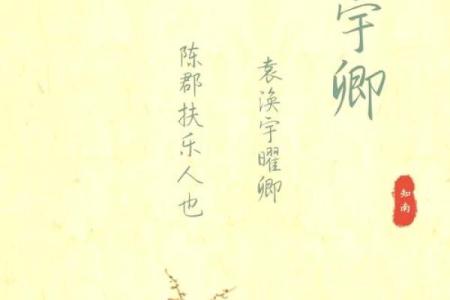 宇卿
袁涣宇曜卿
陈郡扶乐人也
知南